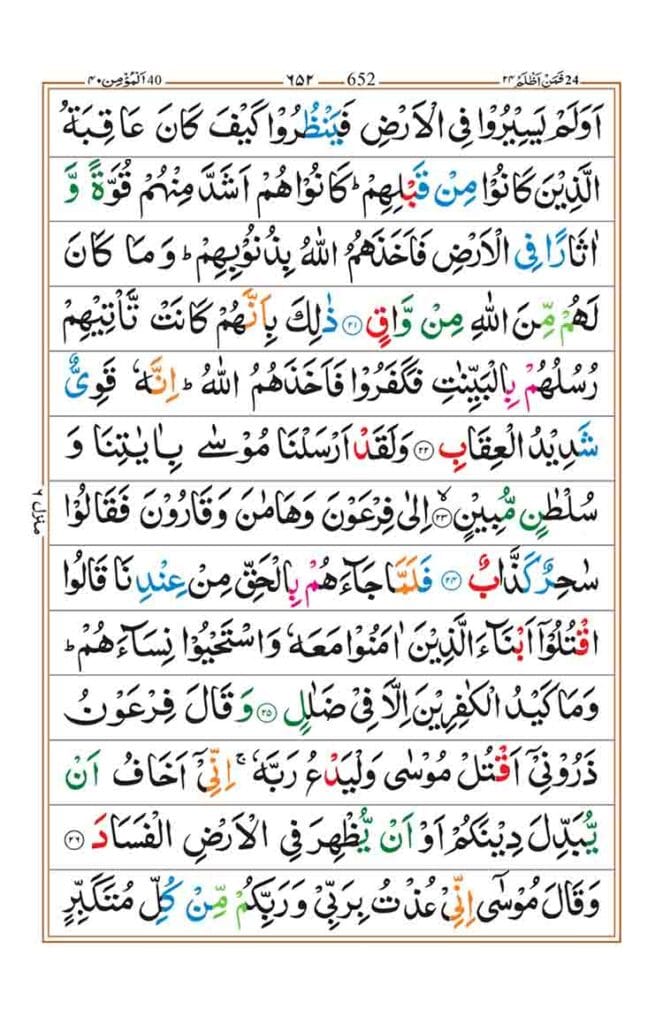 24 فَمَنْ اَظْلَمُ ٢٤ 652 ٦٥٢ 40 اَلْمُؤْمِن ٤٠
اَوَلَمْ يَسِيْرُوْا فِى الْاَرْضِ فَيَنْظُرُوْا كَيْفَ كَانَ عَاقِبَةُ
الَّذِيْنَ كَانُوْا مِنْ قَبْلِهِمْ ؕ كَانُوْا هُمْ اَشَدَّ مِنْهُمْ قُوَّةً وَّ
اٰثَارًا فِى الْاَرْضِ فَاَخَذَهُمُ اللّٰهُ بِذُنُوْبِهِمْ ؕ وَمَا كَانَ
لَهُمْ مِّنَ اللّٰهِ مِنْ وَّاقٍ ۝٢١ ذٰلِكَ بِاَنَّهُمْ كَانَتْ تَّاْتِيْهِمْ
رُسُلُهُمْ بِالْبَيِّنٰتِ فَكَفَرُوْا فَاَخَذَهُمُ اللّٰهُ ؕ اِنَّهٗ قَوِىٌّ
شَدِيْدُ الْعِقَابِ ۝٢٢ وَلَقَدْ اَرْسَلْنَا مُوْسٰى بِاٰيٰتِنَا وَ
سُلْطٰنٍ مُّبِيْنٍ ۝٢٣ۙ اِلٰى فِرْعَوْنَ وَهَامٰنَ وَقَارُوْنَ فَقَالُوْا
سٰحِرٌ كَذَّابٌ ۝٢٤ فَلَمَّا جَآءَهُمْ بِالْحَقِّ مِنْ عِنْدِنَا قَالُوا
اقْتُلُوْۤا اَبْنَآءَ الَّذِيْنَ اٰمَنُوْا مَعَهٗ وَاسْتَحْيُوْا نِسَآءَهُمْ ؕ
وَمَا كَيْدُ الْكٰفِرِيْنَ اِلَّا فِىْ ضَلٰلٍ ۝٢٥ وَقَالَ فِرْعَوْنُ
ذَرُوْنِىْۤ اَقْتُلْ مُوْسٰى وَلْيَدْعُ رَبَّهٗ ۚ اِنِّىْۤ اَخَافُ اَنْ
يُّبَدِّلَ دِيْنَكُمْ اَوْ اَنْ يُّظْهِرَ فِى الْاَرْضِ الْفَسَادَ ۝٢٦
وَقَالَ مُوْسٰۤى اِنِّىْ عُذْتُ بِرَبِّىْ وَرَبِّكُمْ مِّنْ كُلِّ مُتَكَبِّرٍ
منزل ٦